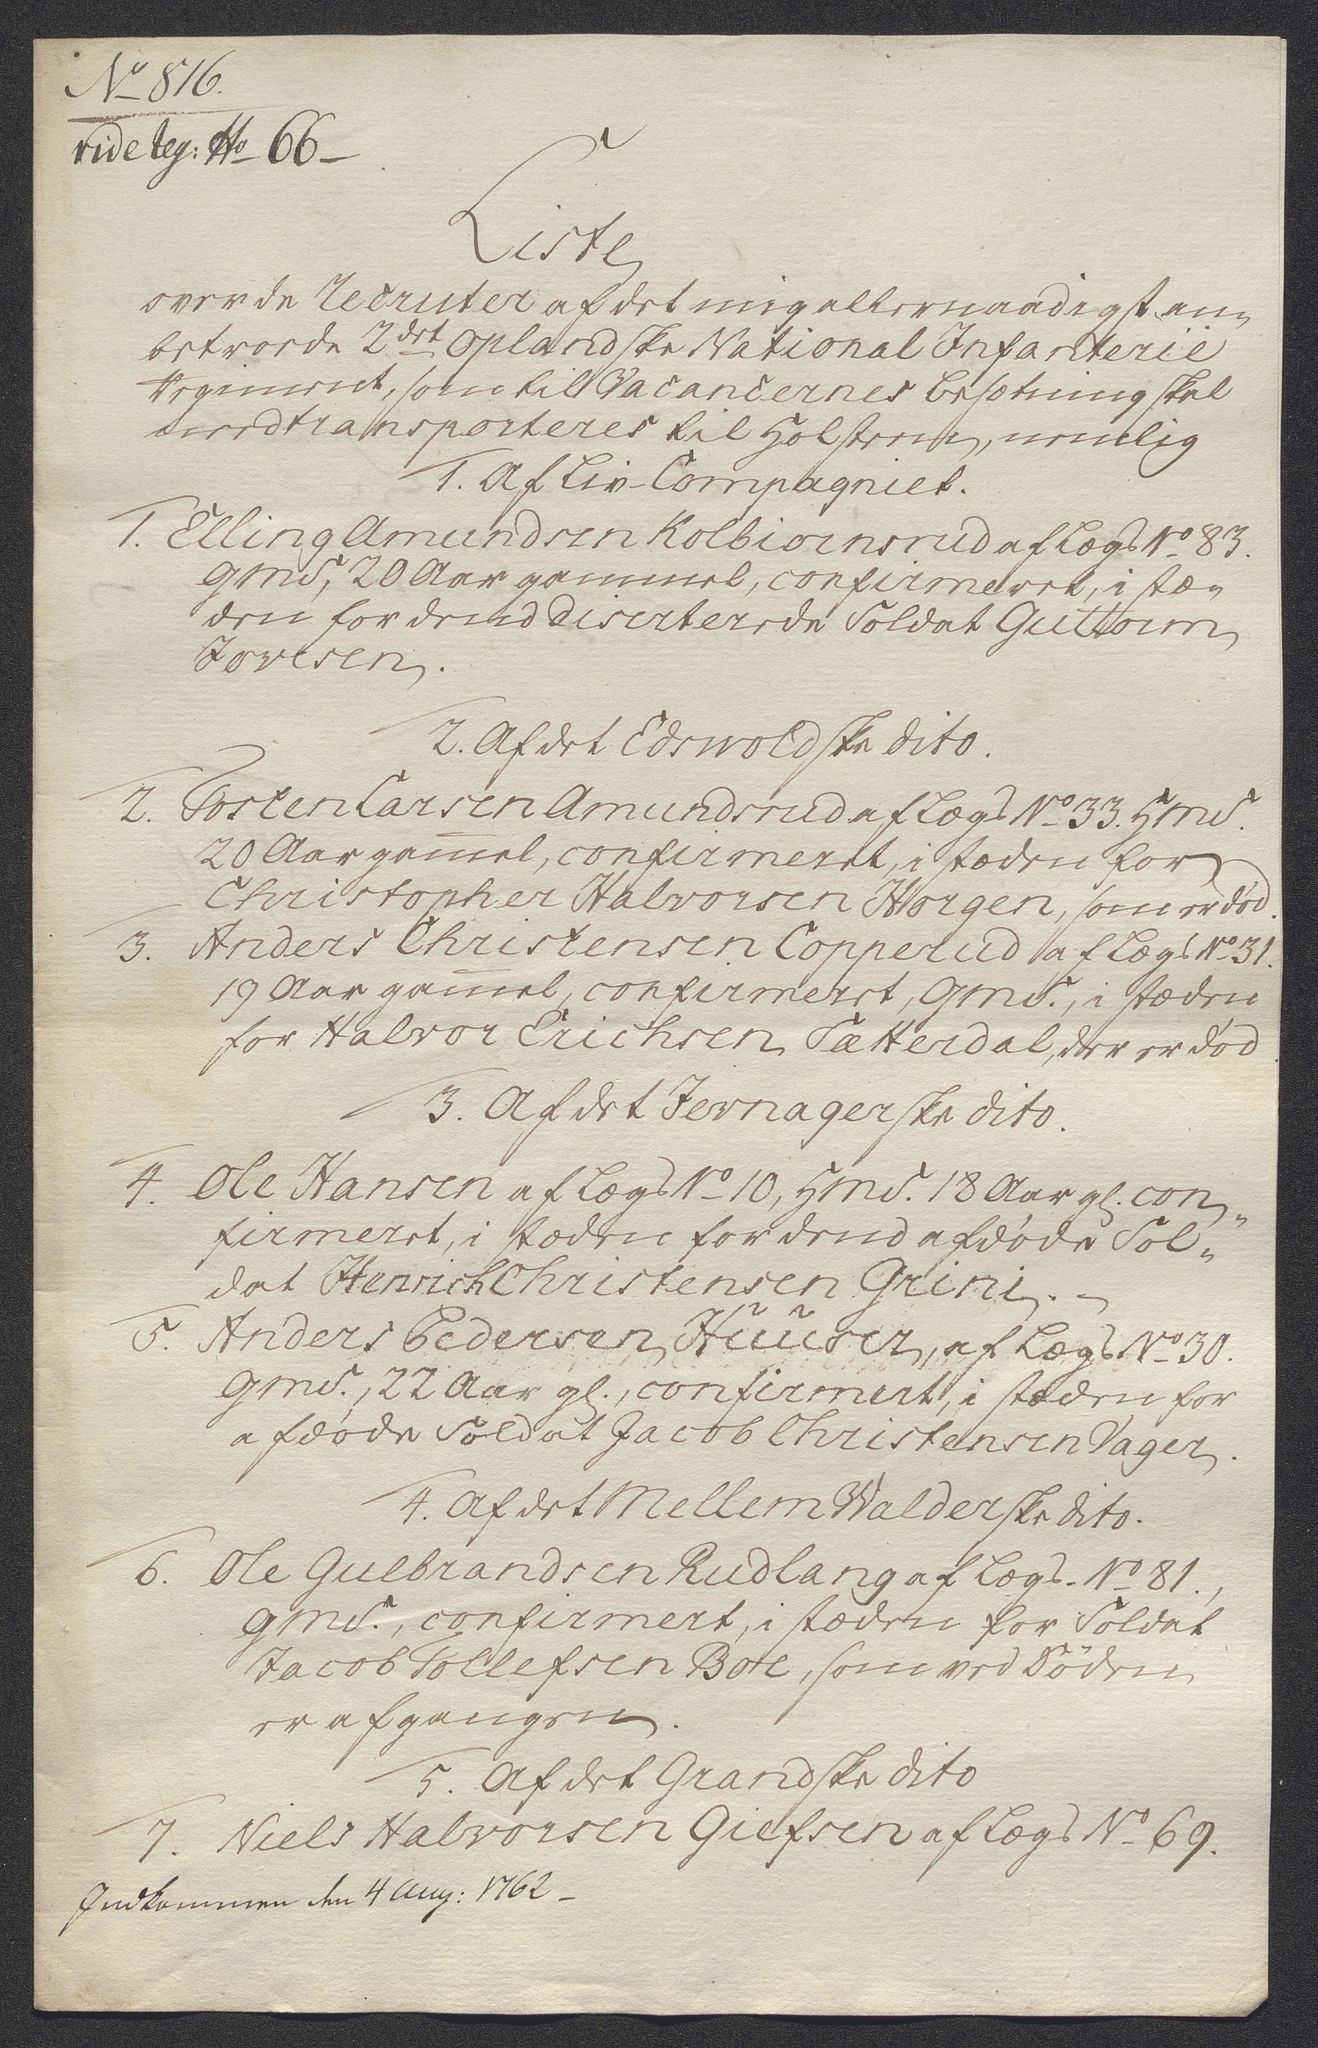 No 816.
vide leg: No 66 –
Liste
over de Recruter af det mig allernaadigst an-
betroede 2det Oplandske National Infanterie
Regiment, som til Vacancernes besætning skal
nedtransporteres til Holsteen, nemlig
1. Af Liv-Compagniet.
1. Elling Amundsen Kolbiørnsrud af Lægd No 83.
gmd., 20 Aar gammel, confirmeret, i stæ-
den for dend diserterede Soldat Guttorm
Joresen.
2. Af det Edswoldske dito.
2. Tosten Larsen Amundsrud af Lægd No 33. hmd.
20 Aar gam̅el, confirmeret, i stæden for
Christopher Halvorsen Horgen, som er død.
3. Anders Christensen Copperud af Lægd No 31.
19 Aar gam̅el, confirmeret, gmd., i stæden
for Halvor Erichsen Sætterdal, der er død
3. Af det Jevnagerske dito.
4. Ole Hansen af Lægd No 10, hmd. 18 Aar gl. con-
firmeret, i stæden for dend afdøde Sol-
dat Henrich Christensen Grini. –
5. Anders Pedersen Huuser, af Lægd No 30.
gmd., 22 Aar gl., confirmert, i stæden for
afdøde Soldat Jacob Christensen Vager.
4. Af det Mellem Walderske dito.
6. Ole Gulbrandsen Rudlang af Lægd. No 81.,
gmd., confirmert, i stæden for Soldat
Jacob Tollefsen Boe, som ved Døden
er afgangen.
5. Af det Grandske dito
7. Niels Halvorsen Giefsen af Lægd No 69.
Indkommen den 4 Aug: 1762 –